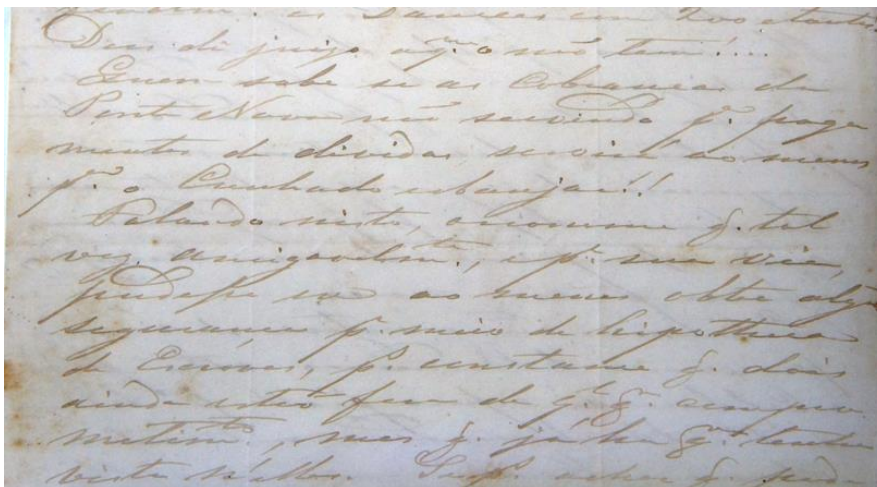 com 200 
Deus dê juizo a q.m o não tem!...
Quem sabe se as Cobranças da
Ponte Nova não servindo p.a paga
mentos de dividas, servirá ao menos
p.a o Cunhado esbanjar!!
Falando nisto, q. tal
vez amigavelm.te, e p.r sua via,
pudesse se ao menos obter alg.a
segurança p.r meio de hipotheca
de Escravos, p.s consta-me q. dois
ainda estão fora de q.l q.r compro
metim.to, mas q. já ha q.m tenha
vista n'elles. q.